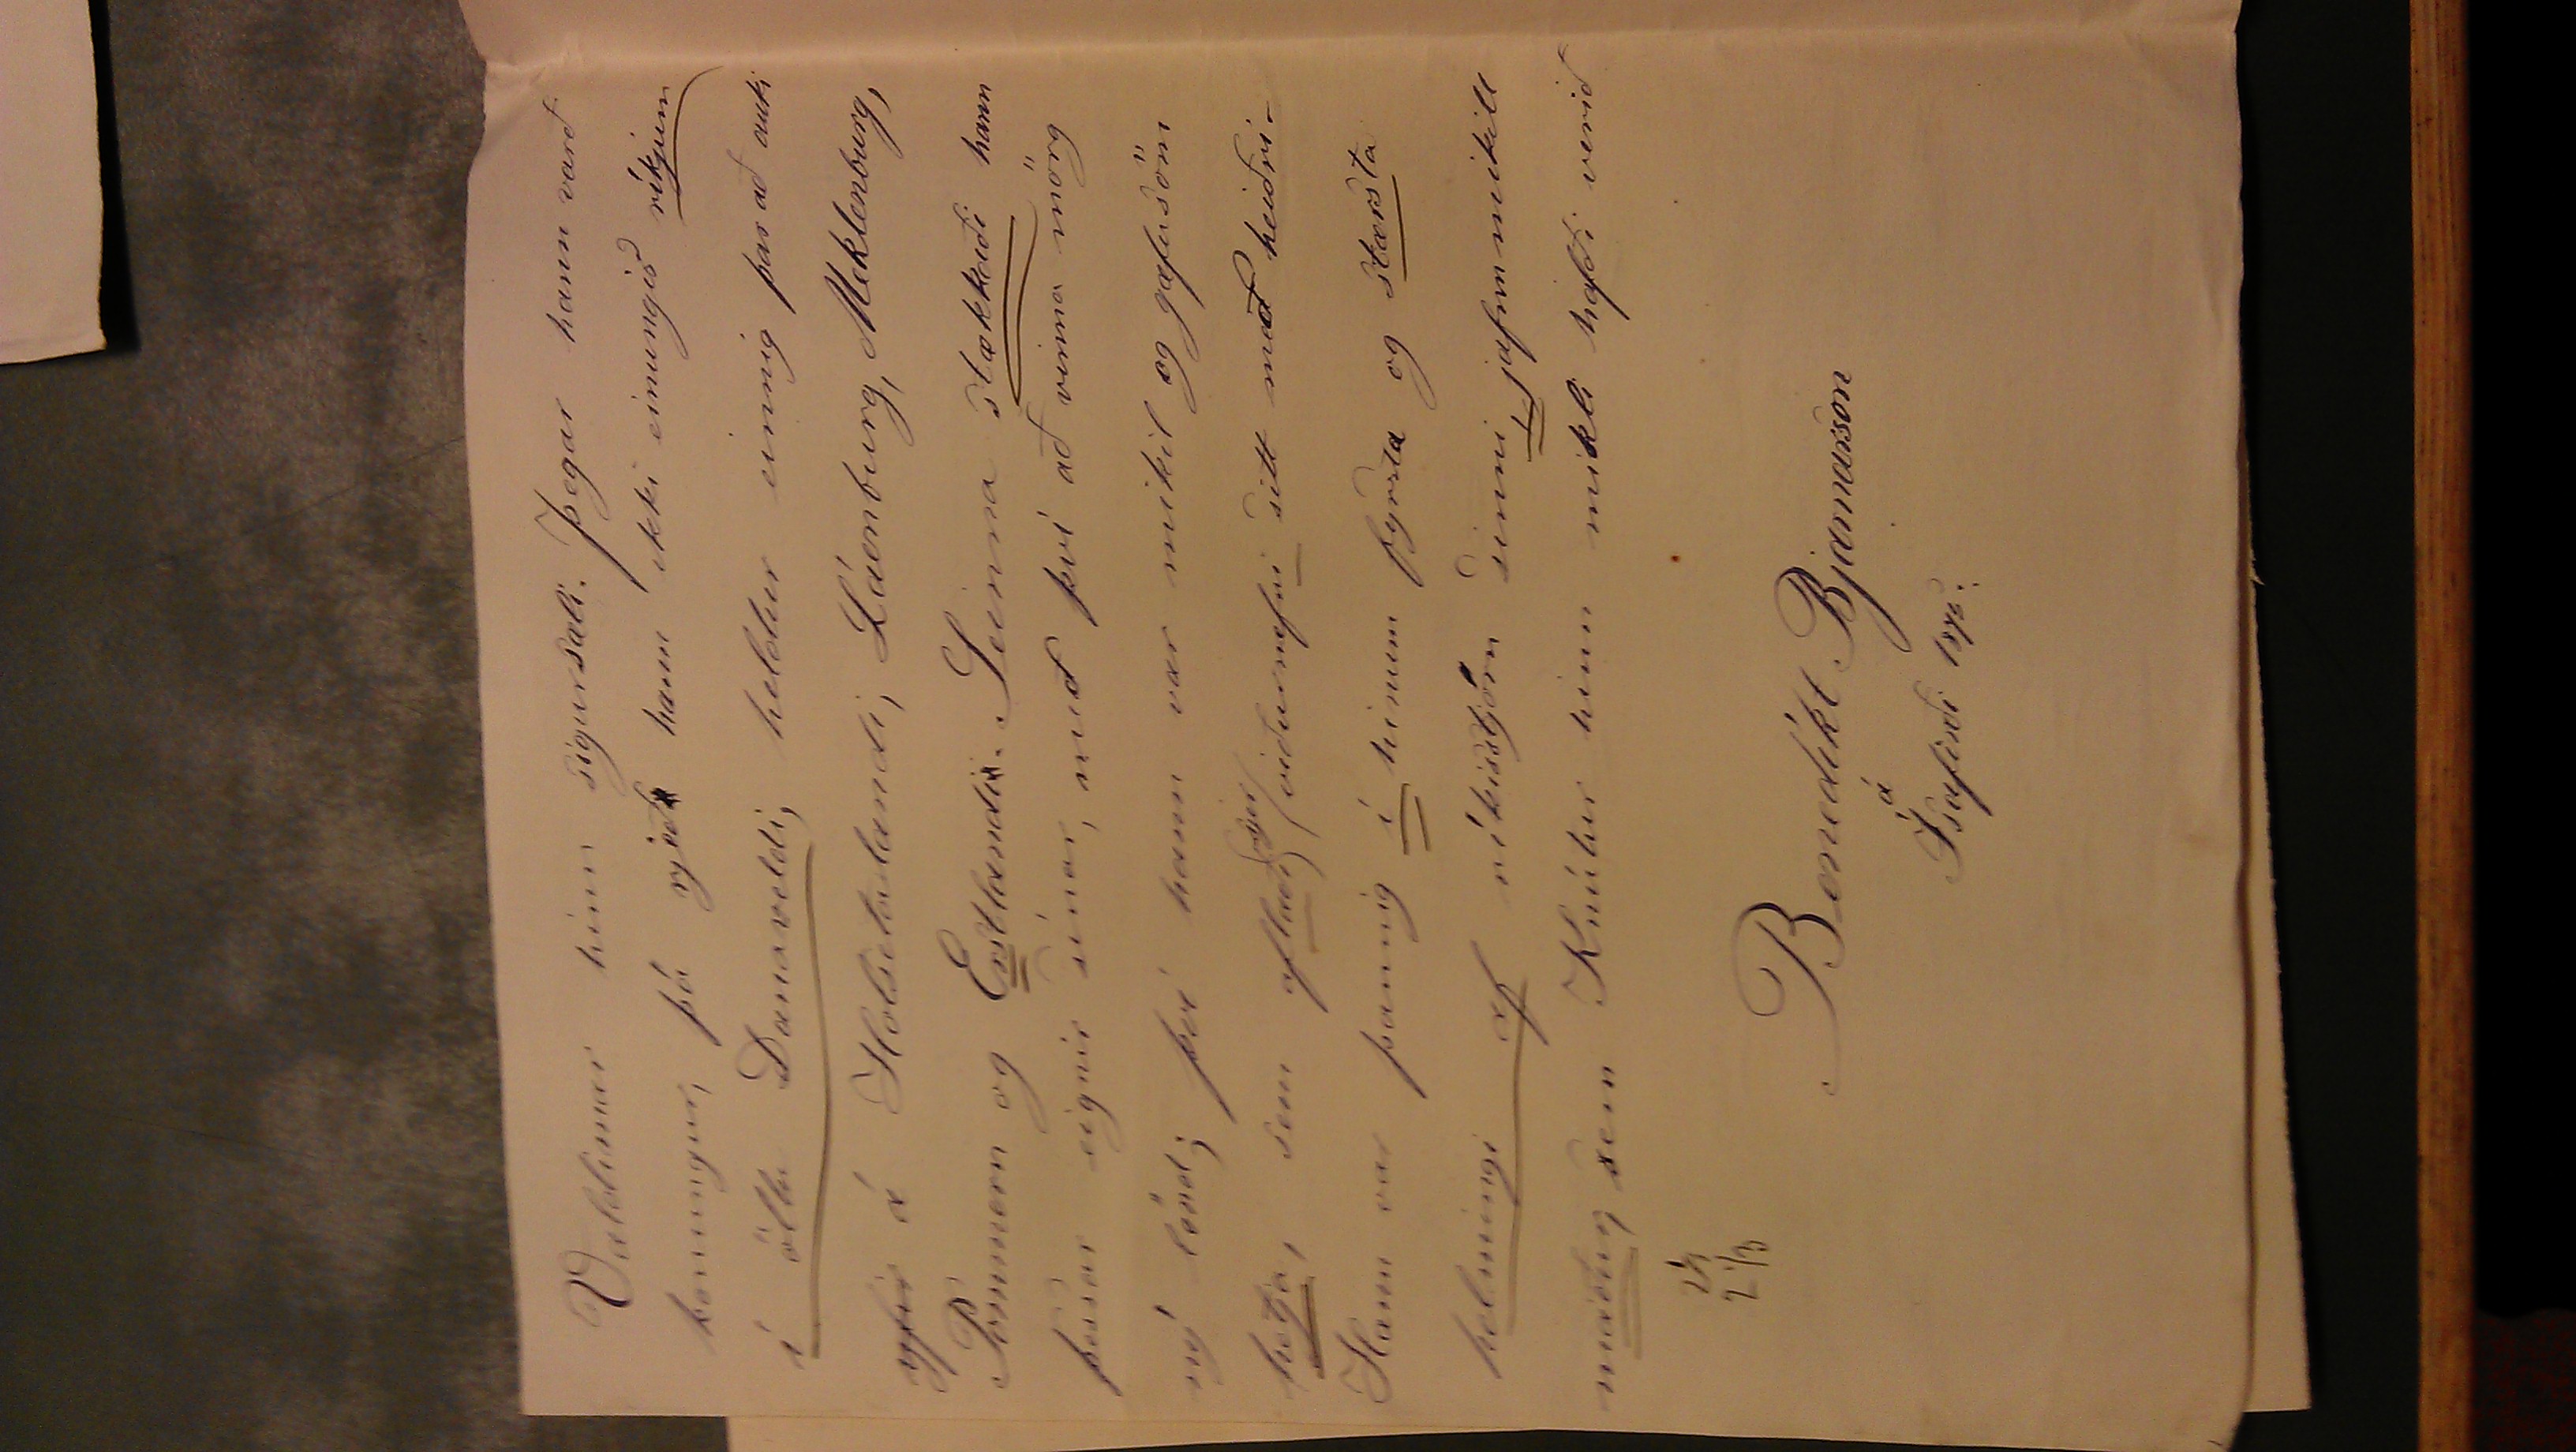 Valdimar hinn sigursæli. Þegar hann varð
konungur, þá rjeð hann ekki einungis ríkjum
í öllu Danaveldi, heldur einnig þar að auki
yfir á Holsetalandi, Láenburg, Meklenburg,
Pommern og Estlandi. Seinna stækkaði hann
þessar eignir sínar, með því að vinna mörg
ný lönd; því hann var mikil og gæfusöm
hetja, sem aflaði sjer viðurnefni sitt með heiðri.
Hann var þannig í hinum fyrsta og stærsta
helmingi af ríkisstjórn sinni jafnmikill
maður, sem Knútur hinn mikli hafði verið
2½
2⅓
Benedikt Bjarnarson
á
Ísafirði 1876.